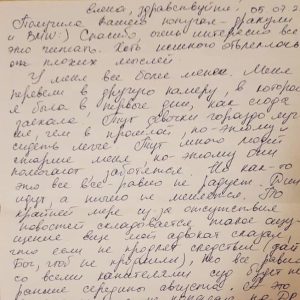 Елена, здравствуйте! 05.07.2
Получила вашей попугая-дракули
и ВМW:) Спасибо, очень интересно все
это читать. Хоть немного отвлеклась
от плохих мыслей
У меня все более менее. Меня
перевели в другую камеру, в которой
я была в первые дни, как сюда
заехала! Тут девочки гораздо луч
ше, чем в прошлой, по-этому и
сидеть легче. Тут много людей
старше меня, по-этому они
помогают, заботятся. Но как-то
это все все-равно не радует. Дни
идут, а ничего не меняется. По
крайней мере из за отсутствия
новостей складывается такое ощу-
щение. Еще мой адвокат сказал,
что если не продлят следствие (дай
Бог, чтоб не продлили), то все равно
со всеми ходатайствами суд будет не
раньше середины августа. это